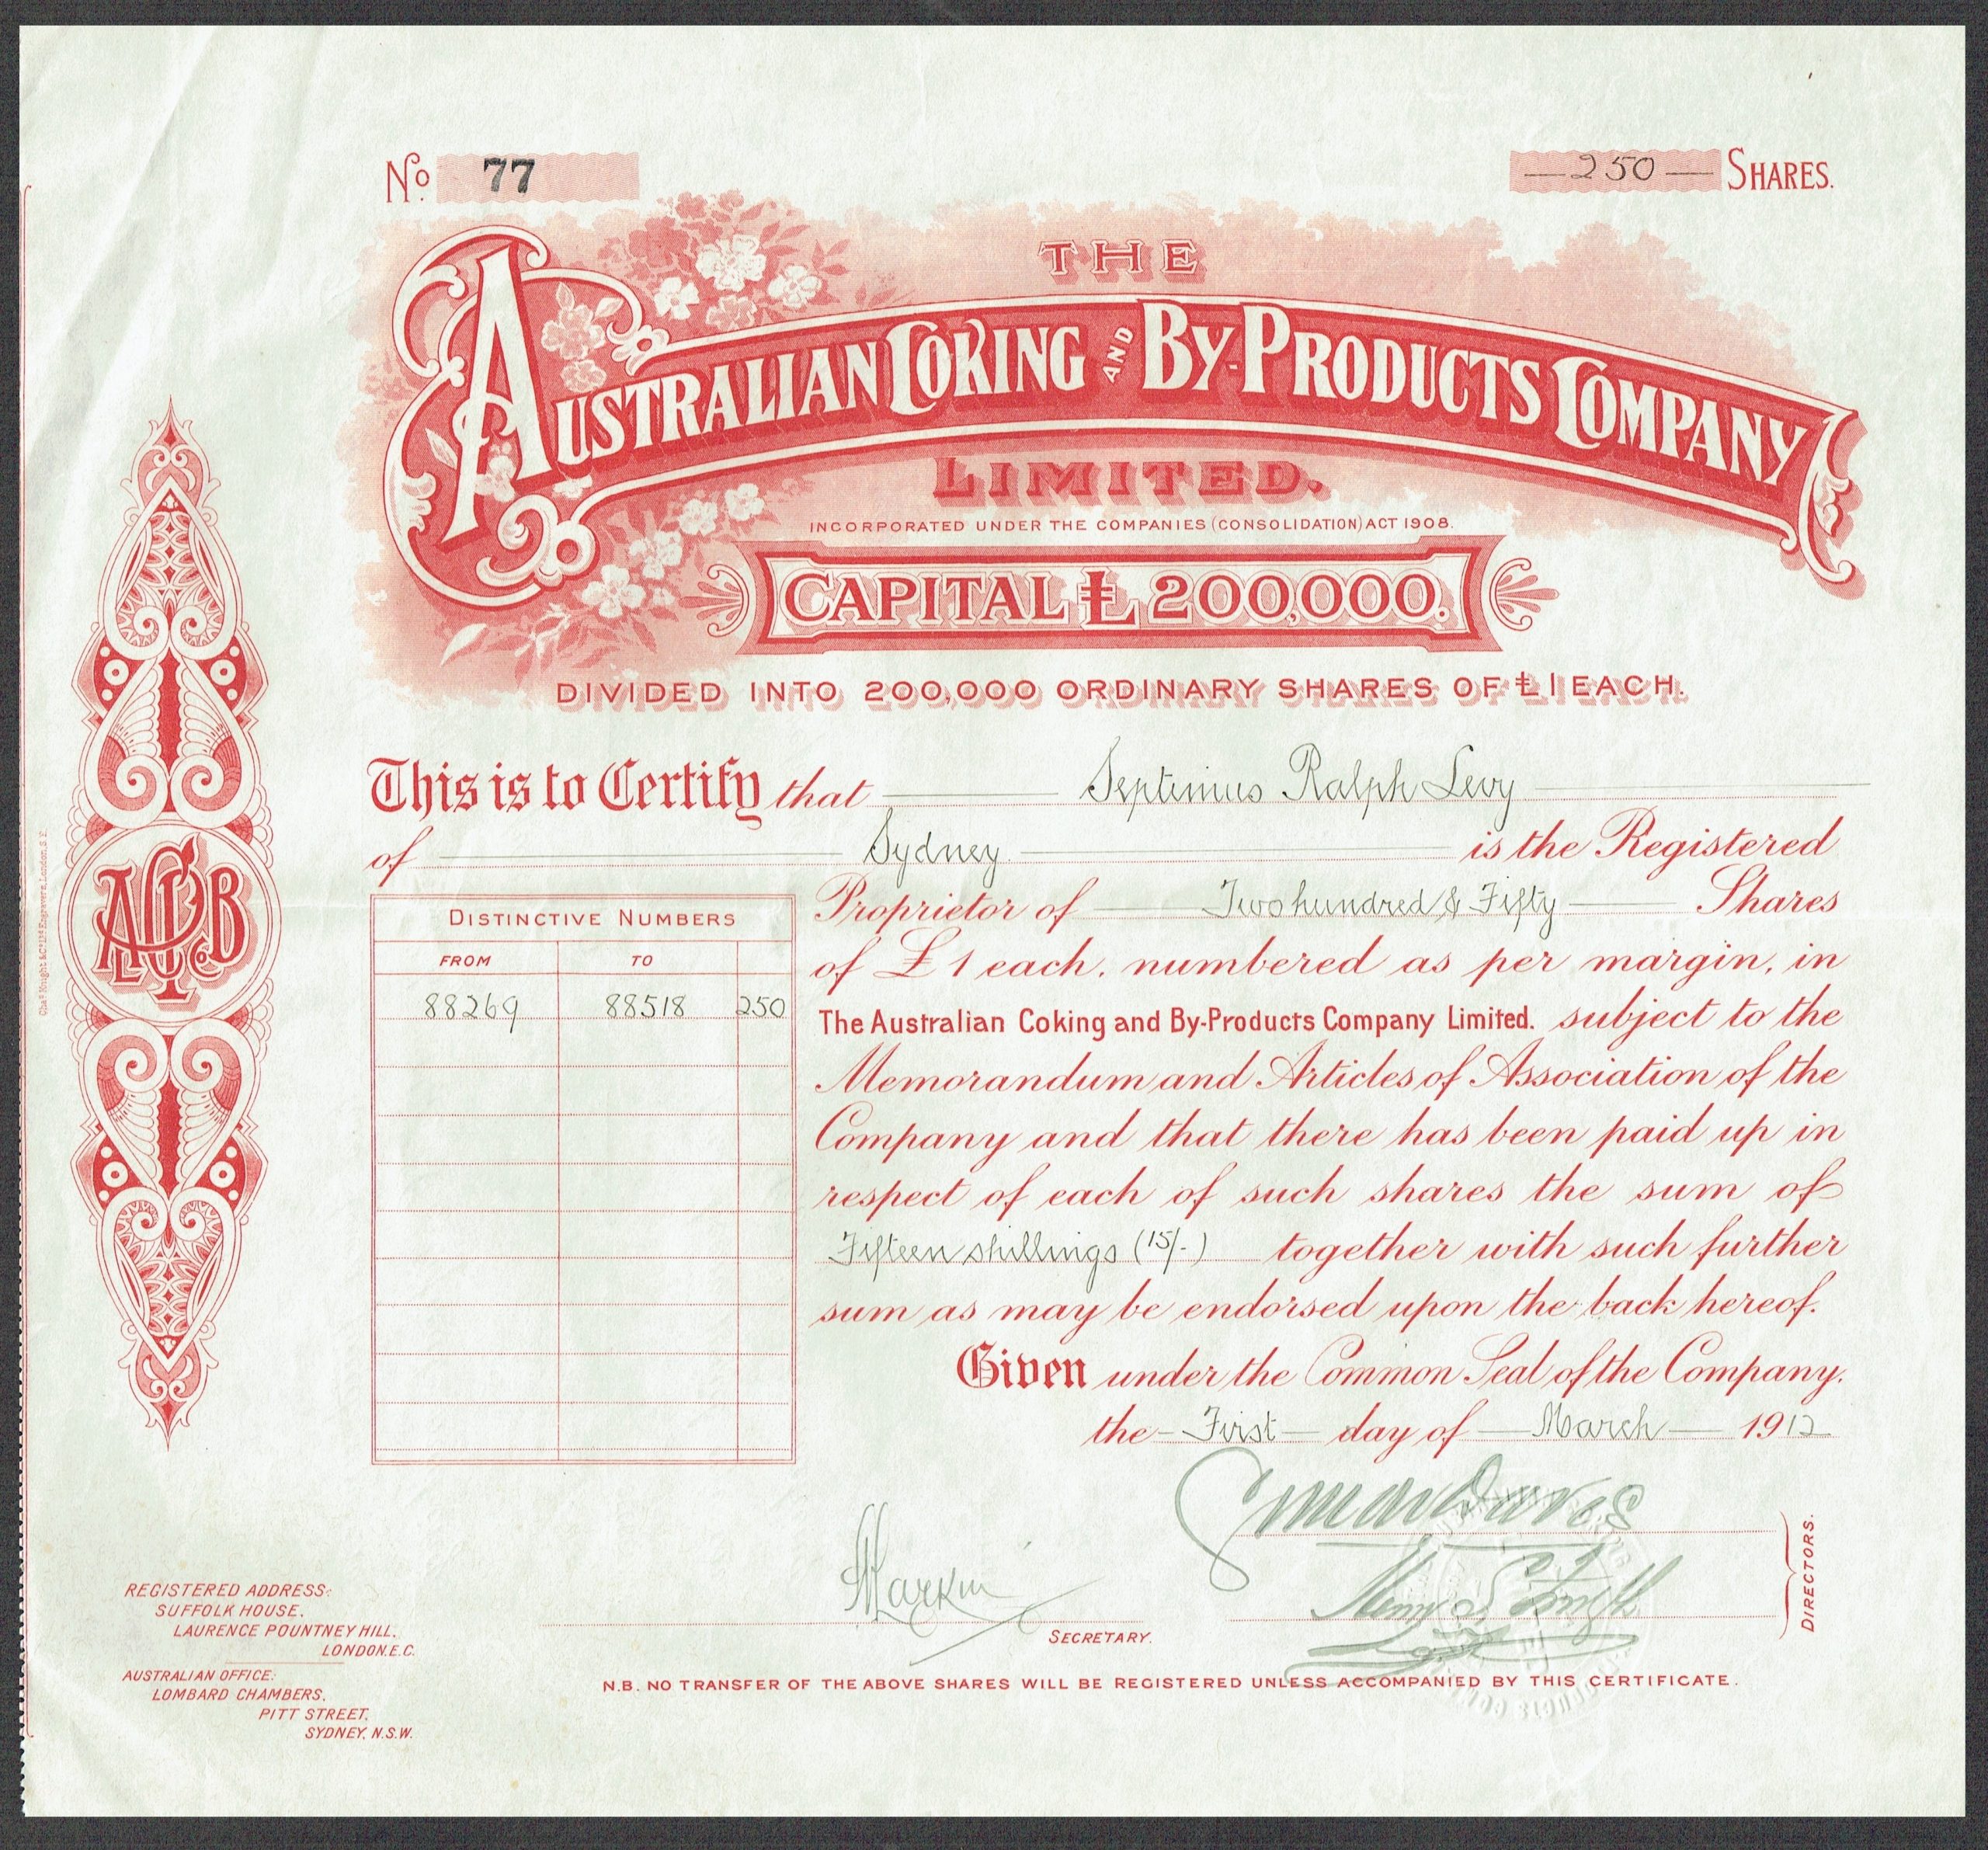 No. 77
250 SHARES.
THE
AUSTRALIAN COKING AND BY-PRODUCTS COMPANY
LIMITED.
INCORPORATED UNDER THE COMPANIES (CONSOLIDATION) ACT 1908.
CAPITAL £200,000.
DIVIDED INTO 200,000 ORDINARY SHARES OF £1 EACH.
This is to Certify that Septimus Ralph Levy
of Sydney is the Registered
Proprietor of Two hundred & Fifty Shares
of £1 each, numbered as per margin, in
The Australian Coking and By-Products Company Limited. subject to the
Memorandum and Articles of Association of the
Company and that there has been paid up in
respect of each of such shares the sum of
Fifteen shillings (15/-) together with such further
sum as may be endorsed upon the back hereof.
Given under the Common Seal of the Company.
the First day of March 1912
DISTINCTIVE NUMBERS
FROM TO
88269 88518 250
DIRECTORS.
SECRETARY.
N.B. NO TRANSFER OF THE ABOVE SHARES WILL BE REGISTERED UNLESS ACCOMPANIED BY THIS CERTIFICATE.
REGISTERED ADDRESS:
SUFFOLK HOUSE,
LAURENCE POUNTNEY HILL,
LONDON.E.C.
AUSTRALIAN OFFICE:
LOMBARD CHAMBERS,
PITT STREET,
SYDNEY, N.S.W.
Chas. Knight & Co. Ltd. Engravers, London, S.E.